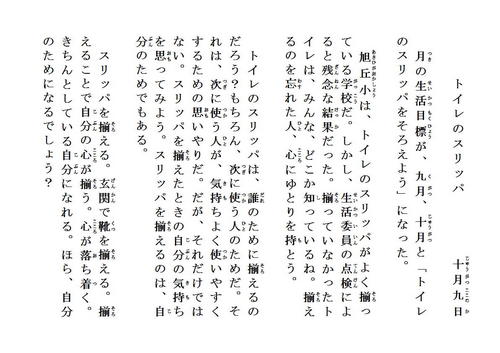 トイレのスリッパ　十月九日
月の生活目標が、九月、十月と「トイレ
のスリッパをそろえよう」になった。
旭丘小は、トイレのスリッパがよく揃っ
ている学校だ。しかし、生活委員の点検によ
ると残念な結果だった。揃っていなかったト
イレは、みんな、どこか知っているね。揃え
るのを忘れた人、心にゆとりを持とう。
トイレのスリッパは、誰のために揃えるの
だろう？もちろん、次に使う人のためだ。そ
れは、次に使う人が、気持ちよく使いやすく
するための思いやりだ。だが、それだけでは
ない。スリッパを揃えたときの自分の気持ち
を思ってみよう。スリッパを揃えるのは、自
分のためでもある。
スリッパを揃える。玄関で靴を揃える。揃
えることで自分の心が揃う。心が落ち着く。
きちんとしている自分になれる。ほら、自分
のためになるでしょう？